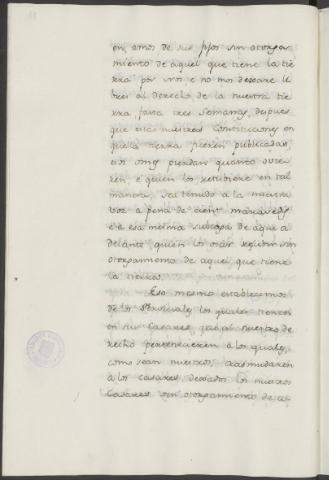 en, amos de sus fijos sin atorga
miento de aquel que tiene la tie
rra por nos e no nos dexare
bres al derecho de la nuestra tie
rra, fasta tres semanas, despues
que estas nuestras Constituciones en
quella tierra fueren publicadas,
los omes pierdan quanto ovie
ren, e quien los retubiere en tal
manera, sea tenudo a la nuestra
voz a pena de cient maravedis
e a esa mesma subcaya de aqui a
delante, quien los osar reçevir sin
otorgamiento de aquel, que tiene
la tierra.
Eso mesmo establecemos
de los Serviciales los quales tienen
en sus Casares, que al nuestro de
recho pertenescieren a los quales,
como sean nuestros, trasmudaren
a los casares, dexados los nuestros
Casares sin otorgamiento de a